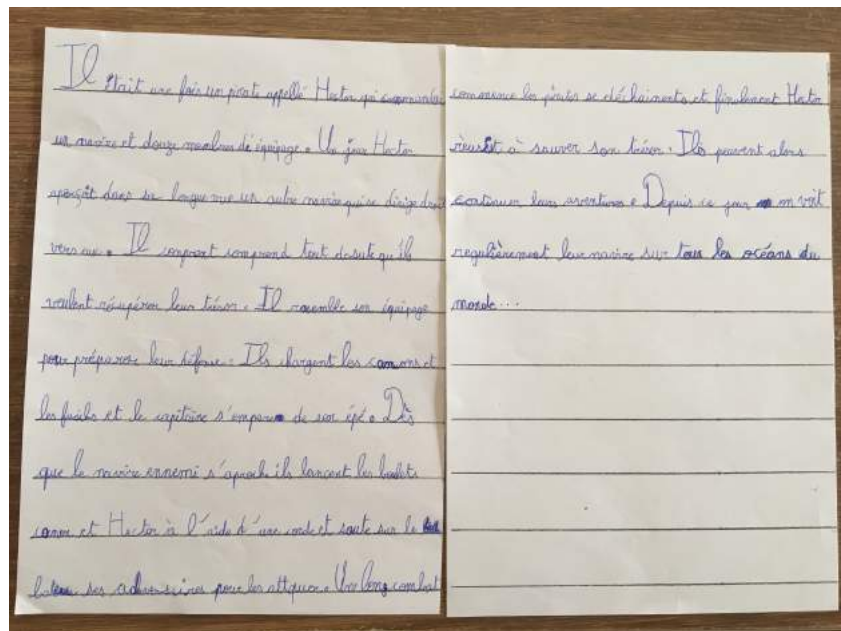 Il était une fois un pirate appellé Hector qui commandai
un navire et douze membres de équipage. Un jour Hector
aperçoit dans sa longue vue un autre navire qui se dirige droit
vers eux. Il comprent comprend tout desuite qu'ils
veulent récupérer leur trésor. Il rasemble son équipage
pour préparer leur défense. Ils chargent les canons et
les fusils et le capitaine s'empare de son épé. Dès
que le navire ennemi s'aproche ils lancent les boulets
canon et Hector à l'aide d'une corde et saute sur le
bateau ses adversaires pour les attquer. Un long combat
commence les pirates se déchainents et finalement Hector
réussit à sauver son trésor. Ils peuvent alors
continuer leurs aventures. Depuis ce jour on voit
regulièrement leur navire sur tous les océans du
monde...